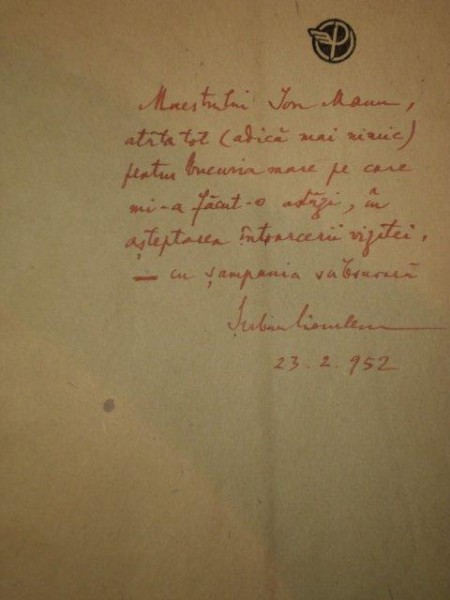 Maestrului Ion Manu,
atîta tot (adică mai nimic)
pentru bucuria mare pe care
mi-a făcut-o astăzi, în
așteptarea întoarcerii vizitei,
— cu șampania subsuoară
Șerban
23.2.952